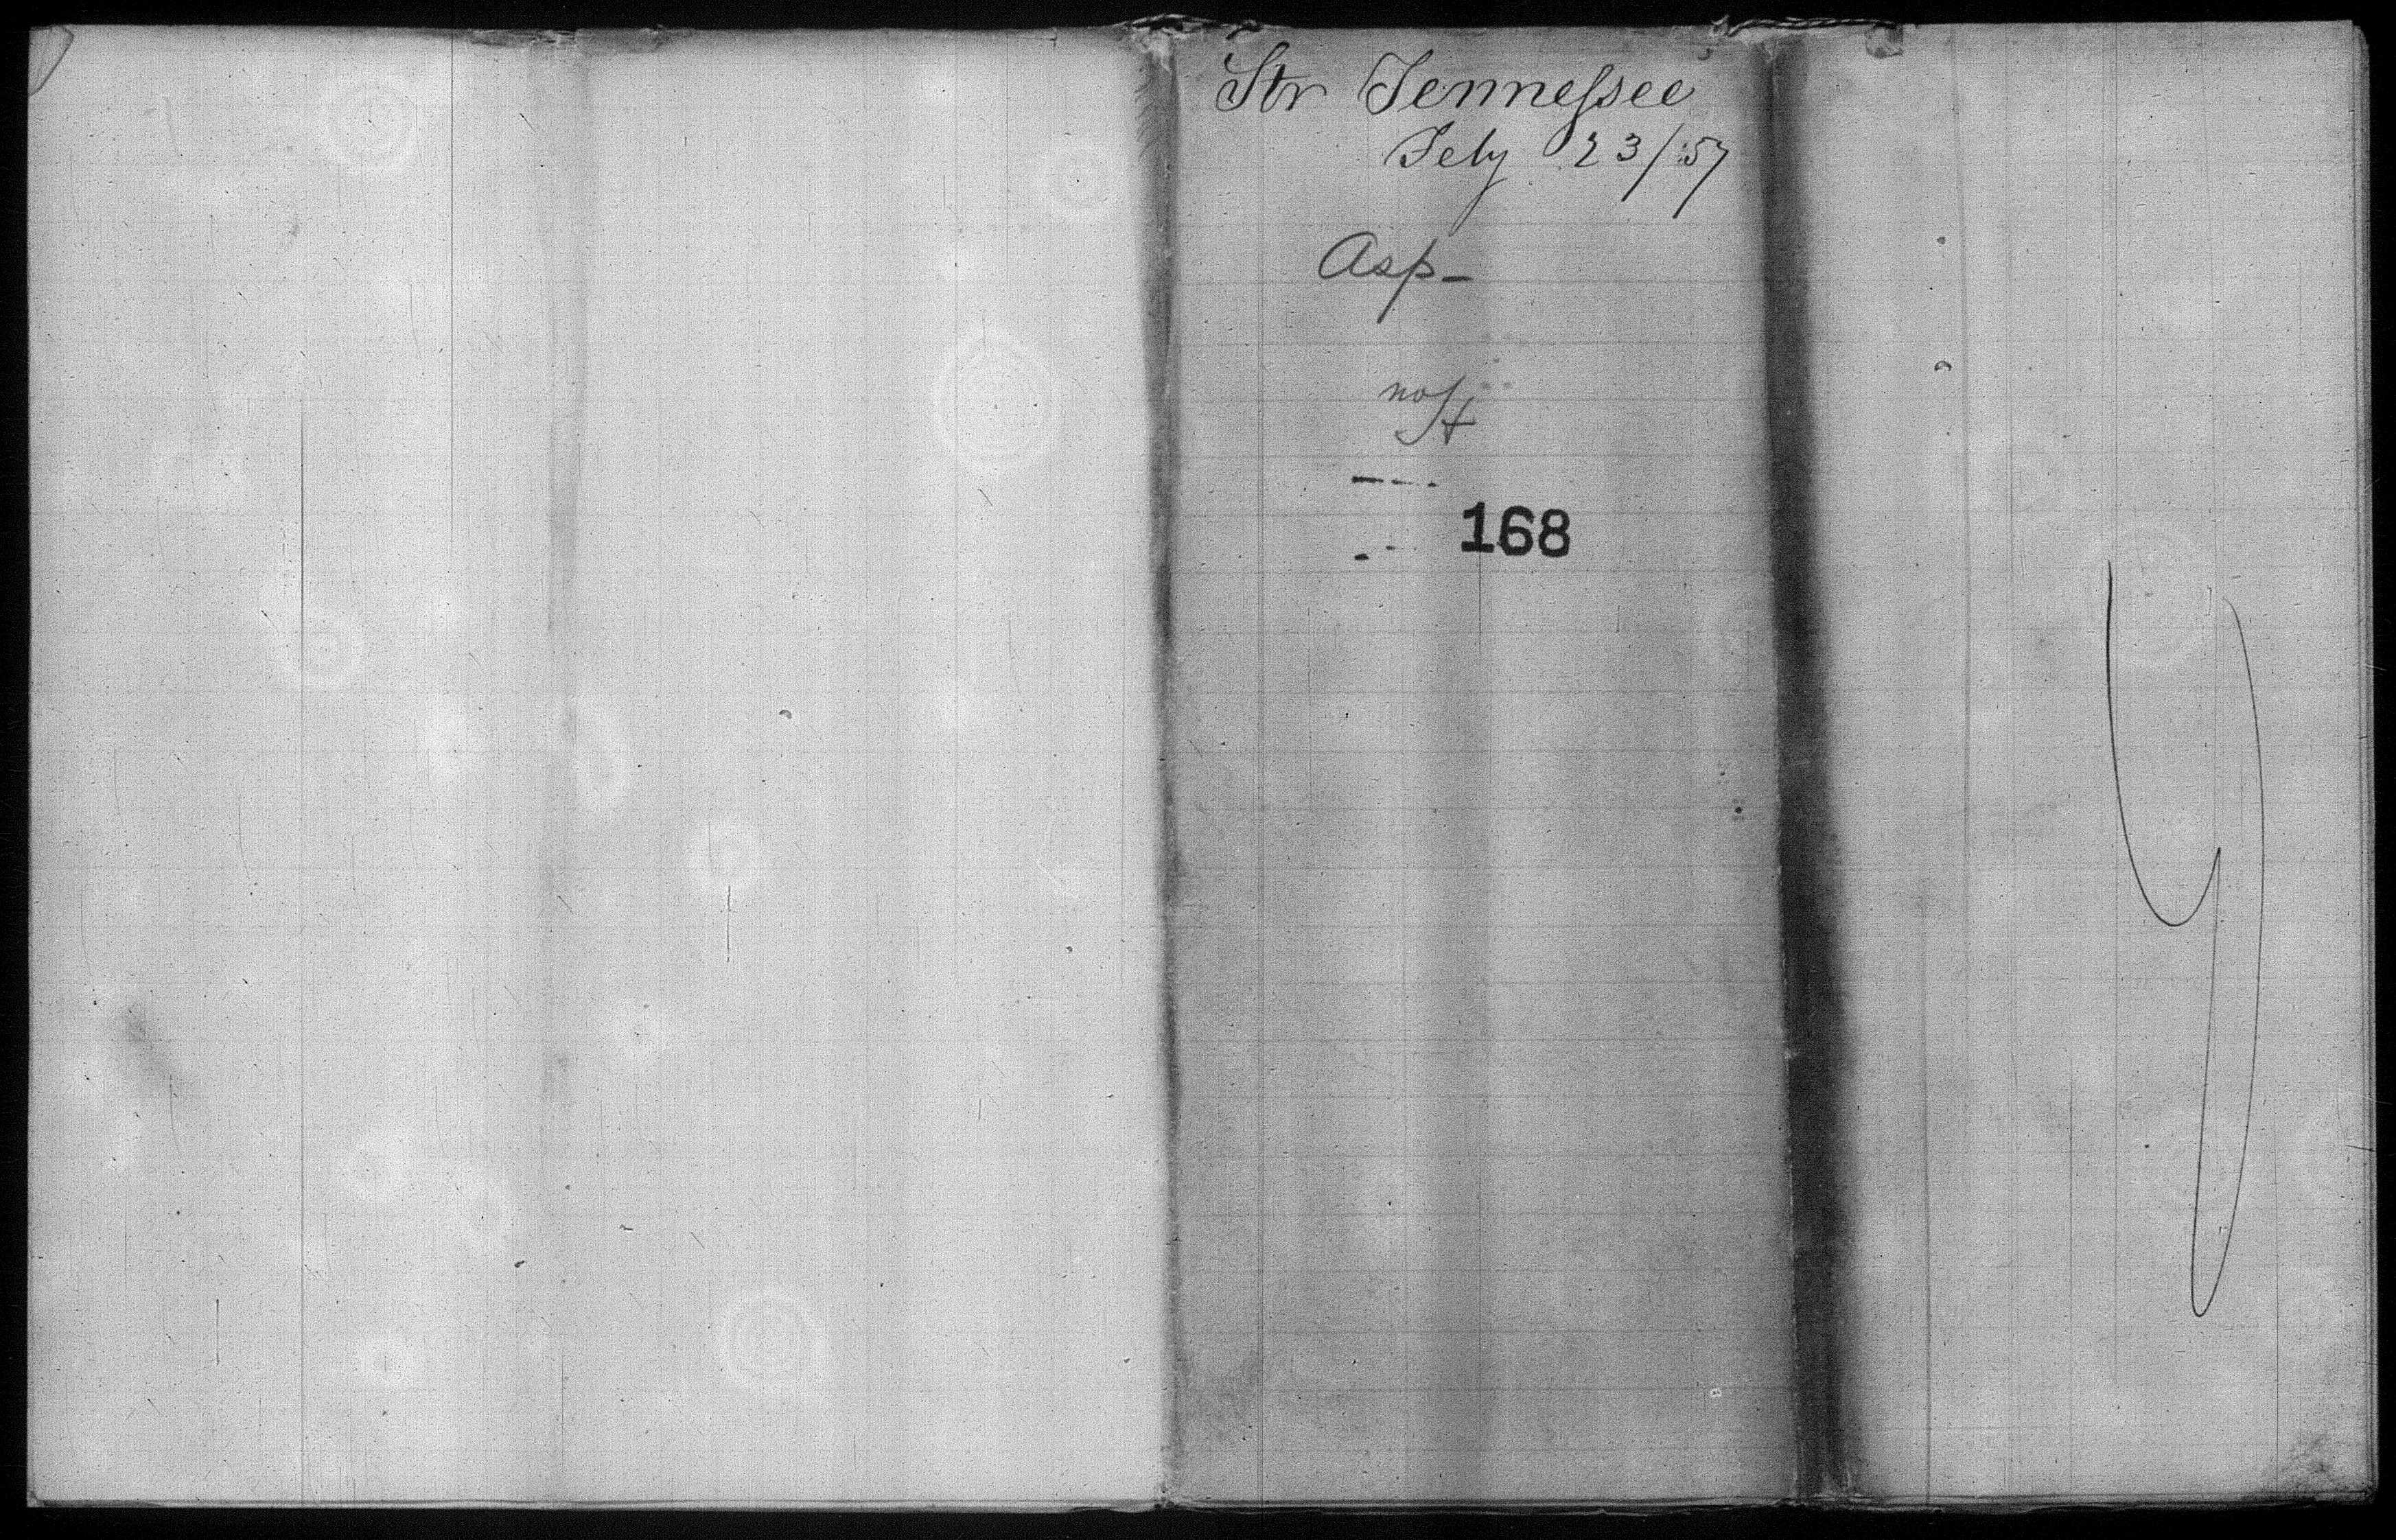 Str Tennessee
Feby 23/57
Asp-
168